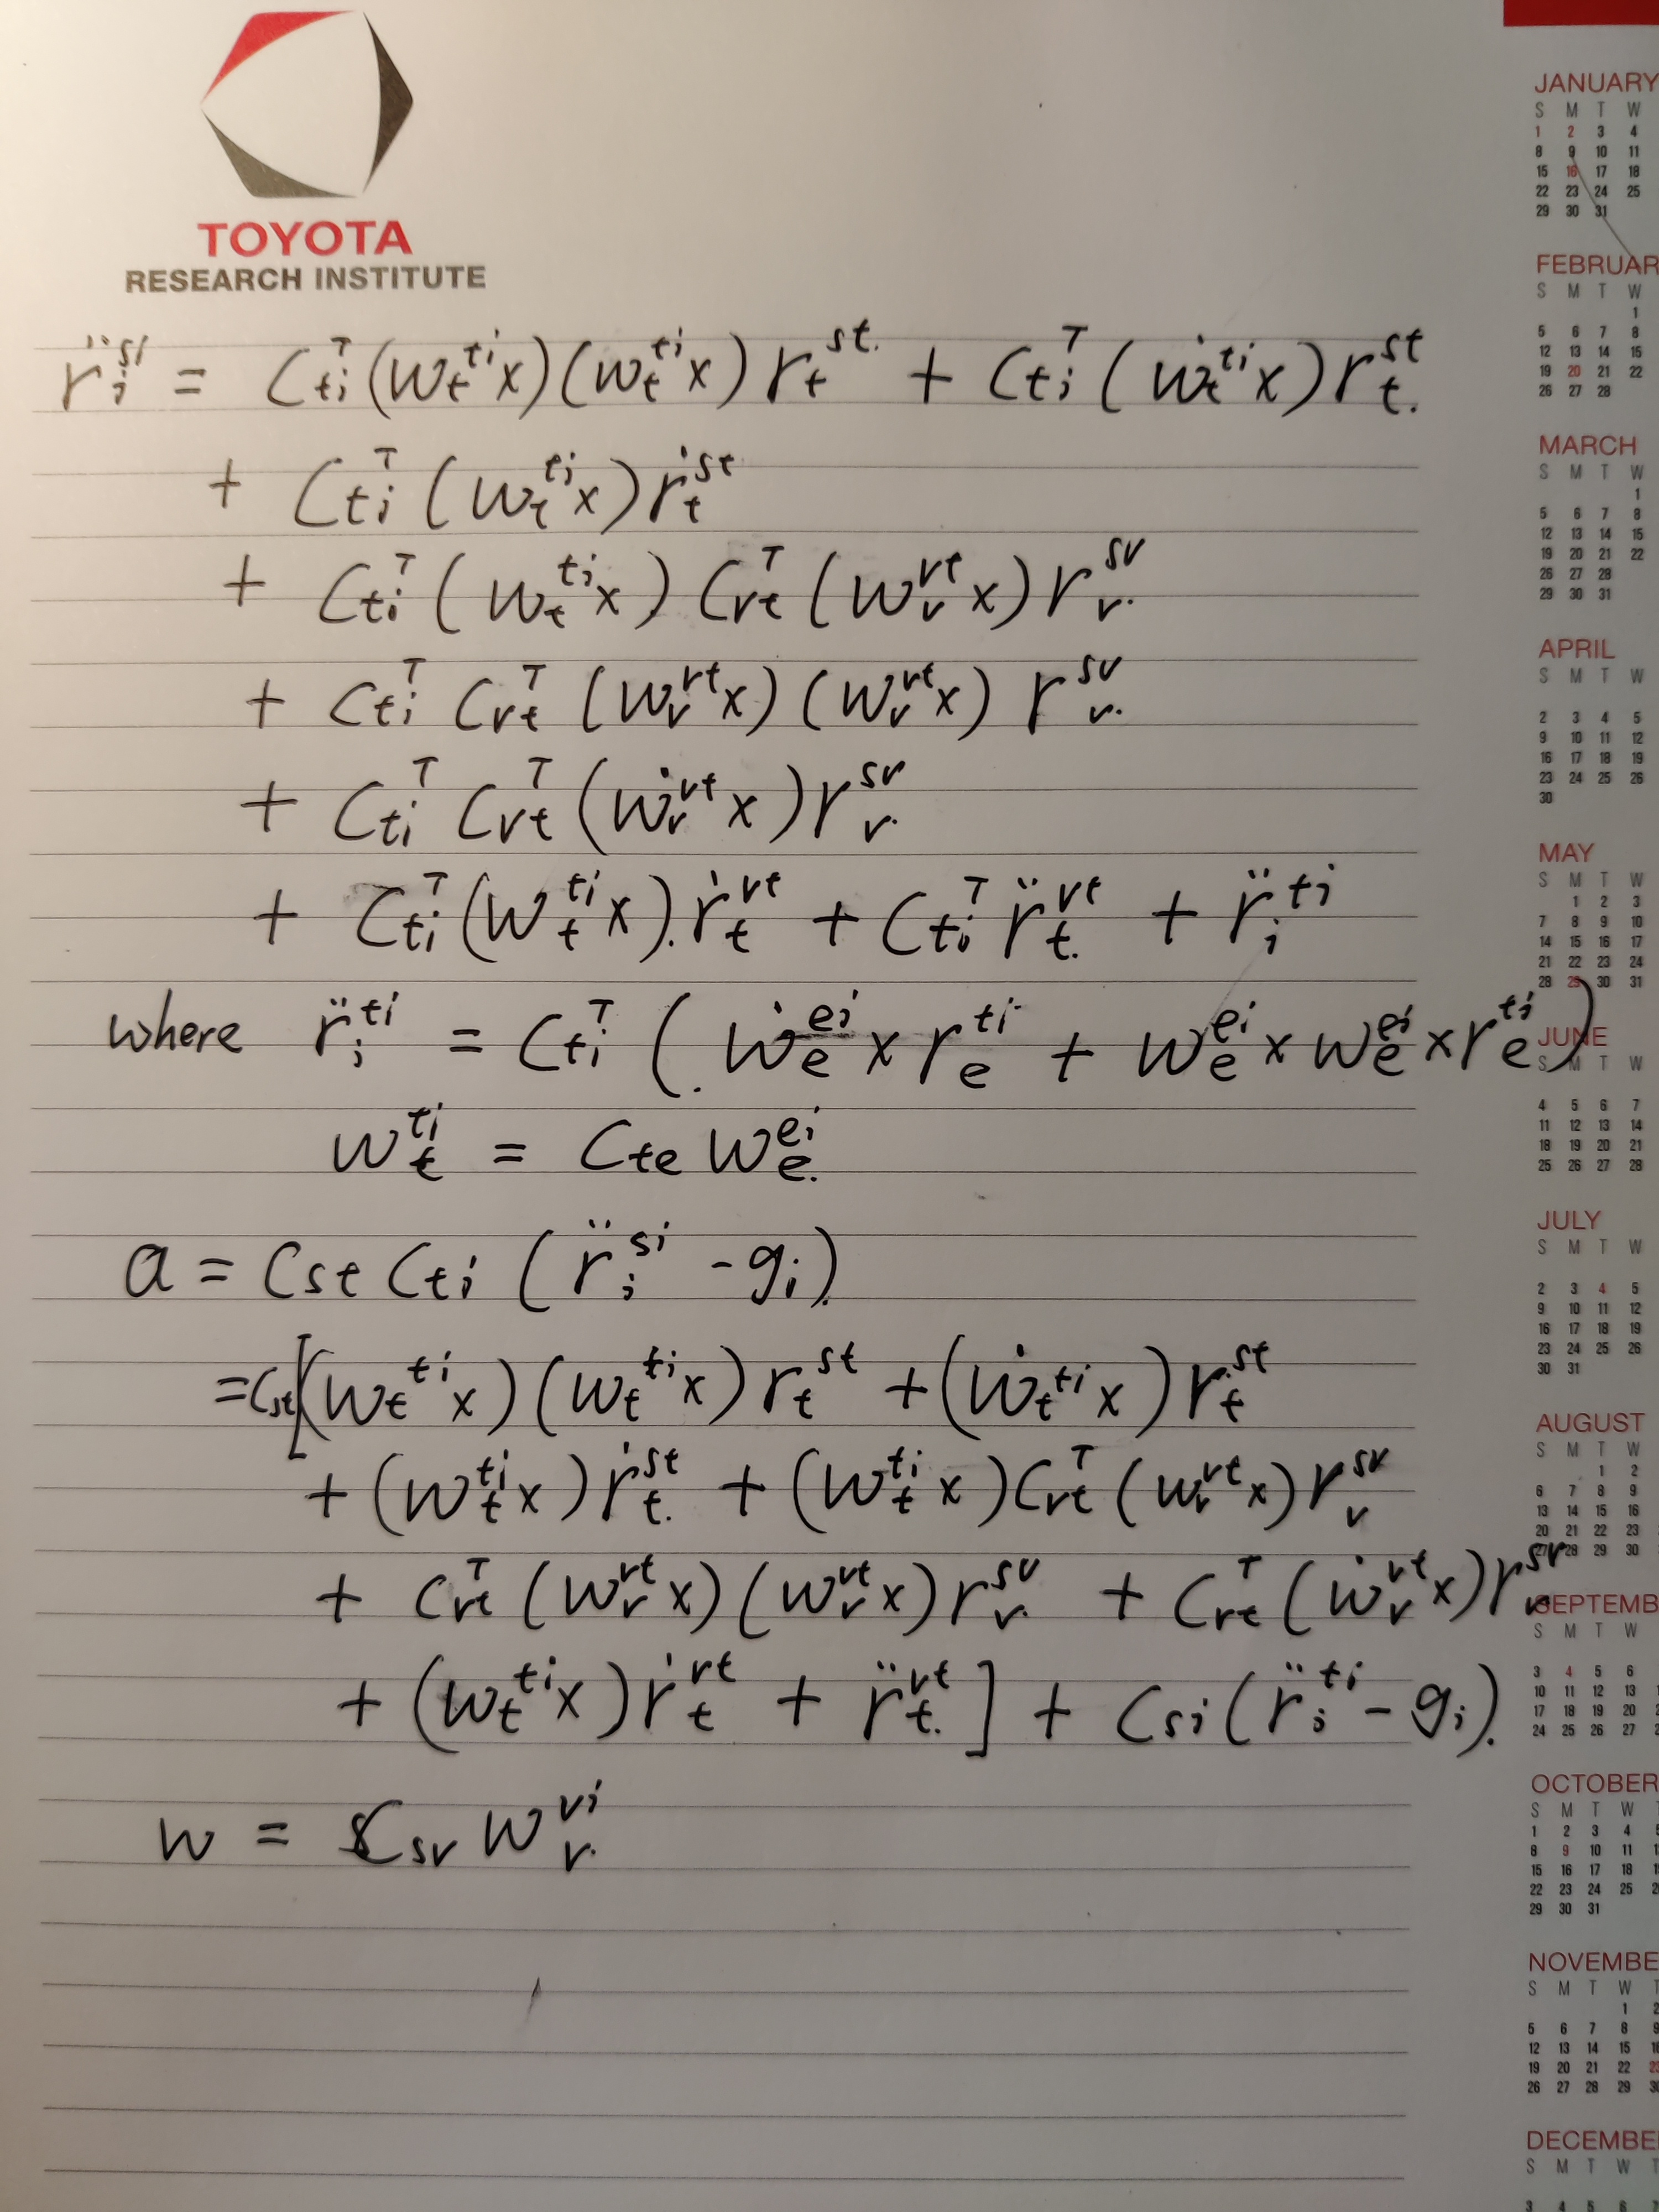 TOYOTA
RESEARCH INSTITUTE
r̈_i^{si} = C_{ti}^T (w_t^{ti}×)(w_t^{ti}×) r_t^{st} + C_{ti}^T (ẇ_t^{ti}×) r_t^{st}
+ C_{ti}^T (w_t^{ti}×) ṙ_t^{st}
+ C_{ti}^T (w_t^{ti}×) C_{vt}^T (w_v^{vt}×) r_v^{sv}
+ C_{ti}^T C_{vt}^T (w_v^{vt}×)(w_v^{vt}×) r_v^{sv}
+ C_{ti}^T C_{vt}^T (ẇ_v^{vt}×) r_v^{sv}
+ C_{ti}^T (w_t^{ti}×) ṙ_t^{vt} + C_{ti}^T r̈_t^{vt} + r̈_i^{ti}
where r̈_i^{ti} = C_{ti}^T (ẇ_e^{ei} × r_e^{ti} + w_e^{ei} × w_e^{ei} × r_e^{ti})
w_t^{ti} = C_{te} w_e^{ei}
a = C_{st} C_{ti} (r̈_i^{si} - g_i)
= C_{st} [(w_t^{ti}×)(w_t^{ti}×) r_t^{st} + (ẇ_t^{ti}×) r_t^{st}
+ (w_t^{ti}×) ṙ_t^{st} + (w_t^{ti}×) C_{vt}^T (w_v^{vt}×) r_v^{sv}
+ C_{vt}^T (w_v^{vt}×)(w_v^{vt}×) r_v^{sv} + C_{vt}^T (ẇ_v^{vt}×) r_v^{sv}
+ (w_t^{ti}×) ṙ_t^{vt} + r̈_t^{vt}] + C_{si} (r̈_i^{ti} - g_i)
w = C_{sv} w_v^{vi}
JANUARY
S M T W
1 2 3 4
8 9 10 11
15 16 17 18
22 23 24 25
29 30 31
FEBRUAR
S M T W
1
5 6 7 8
12 13 14 15
19 20 21 22
26 27 28
MARCH
S M T W
1
5 6 7 8
12 13 14 15
19 20 21 22
26 27 28
29 30 31
APRIL
S M T W
2 3 4 5
9 10 11 12
16 17 18 19
23 24 25 26
30
MAY
S M T W
1 2 3
7 8 9 10
14 15 16 17
21 22 23 24
28 29 30 31
JUNE
S M T W
4 5 6 7
11 12 13 14
18 19 20 21
25 26 27 28
JULY
S M T W
2 3 4 5
9 10 11 12
16 17 18 19
23 24 25 26
30 31
AUGUST
S M T W
1 2
6 7 8 9
13 14 15 16
20 21 22 23
27 28 29 30
SEPTEMB
S M T W
3 4 5 6
10 11 12 13
17 18 19 20
24 25 26 27
OCTOBER
S M T W
1 2 3 4
8 9 10 11
15 16 17 18
22 23 24 25
29 30 31
NOVEMBE
S M T W
1
5 6 7 8
12 13 14 15
19 20 21 22
26 27 28 29
DECEMBE
S M T W
3 4 5 6